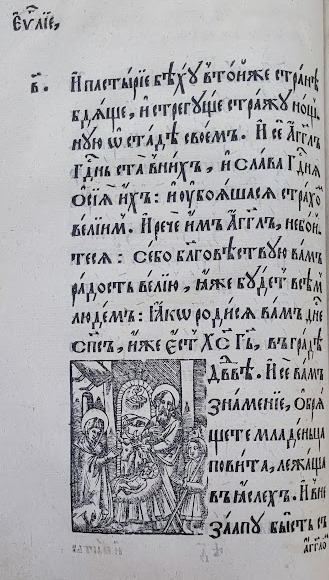 Еѵⷢ҇лїе,
в҃.
И҆пастырїе бѣхꙋ в̾то́йже странѣ
бдѧще, и҆стрегꙋще стражꙋ нощ̾
нꙋю ѡ҆стадѣ своемъ. И҆се́ а҆г҃глъ
гдⷭ҇нь ста в̾нихъ, и҆слава гдⷭ҇нѧ
ѡ҆сїѧ и҆́хъ: и҆ꙋбоѧшасѧ страхо
велїимъ. И҆рече и҆́мъ а҆г҃глъ, небо́й
тесѧ: Себо бл҃говѣствꙋю вамъ
радость велїю, ꙗ҆́же бꙋдетъ всѣм̾
людемъ: ꙗ҆́кѡ родисѧ вамъ дн҃е
сп҃съ, и҆́же е҆́стъ Хс҃ Гь҃, въ градѣ
Дв҃дѣ. И҆се́ вамъ
знаменїе, ѡ҆брѧ
щете младеньца
повита, лежаща
въ ꙗ҆слехъ. И҆вне
заапꙋ бысть съ
а҆г҃гло